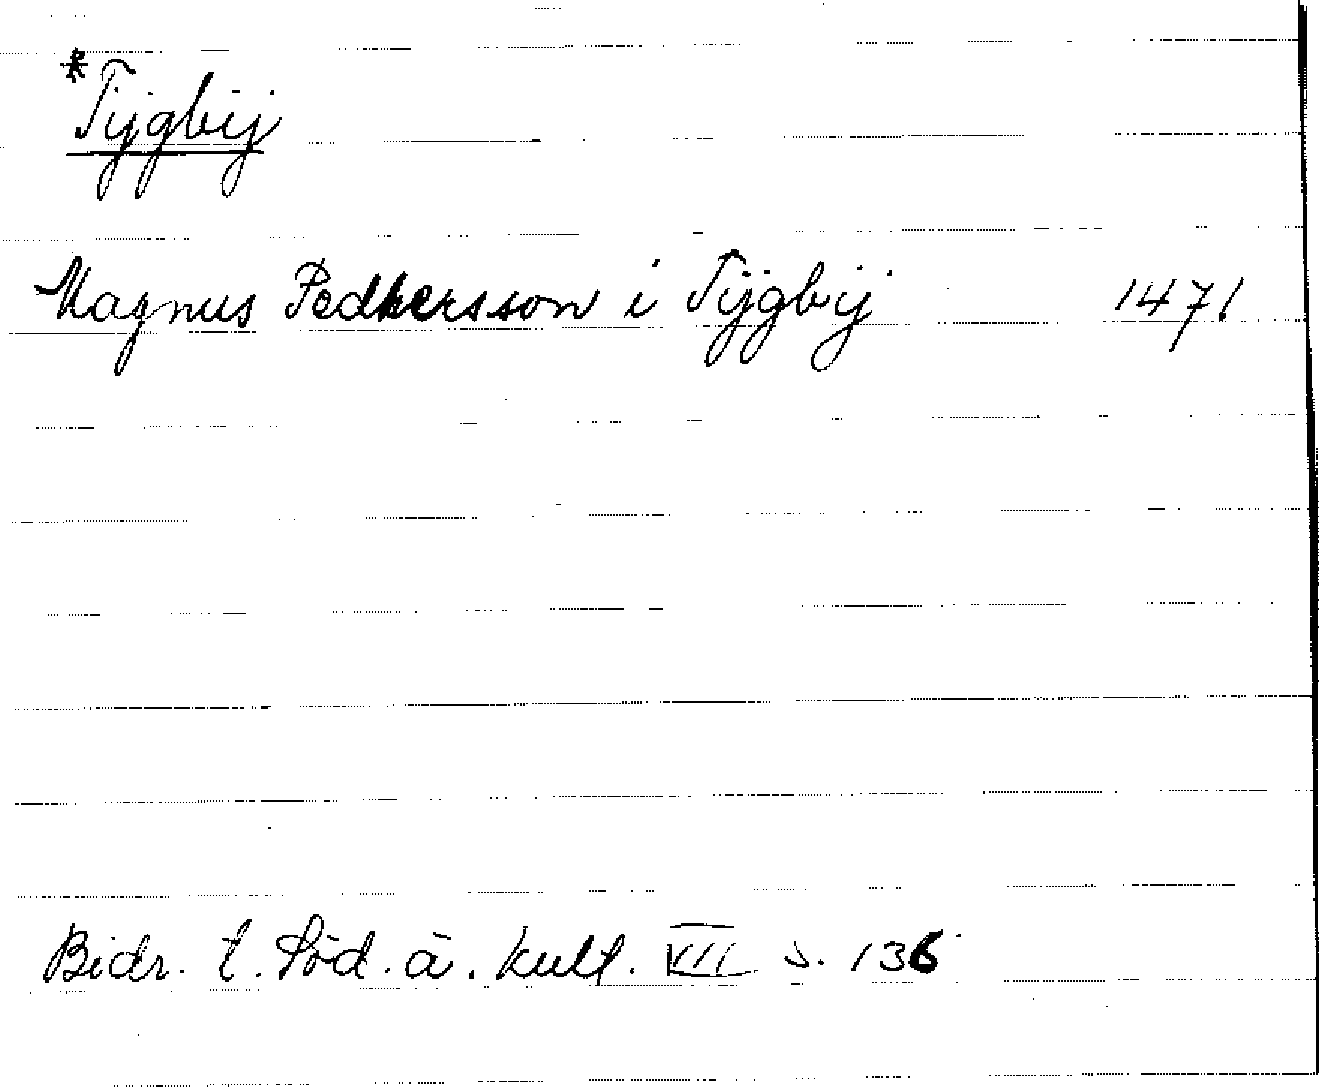 *Tijgbij
Magnus Pedhersson i Tijgbij 1471
Bidr. t. Söd. ä. kult. VII s. 136